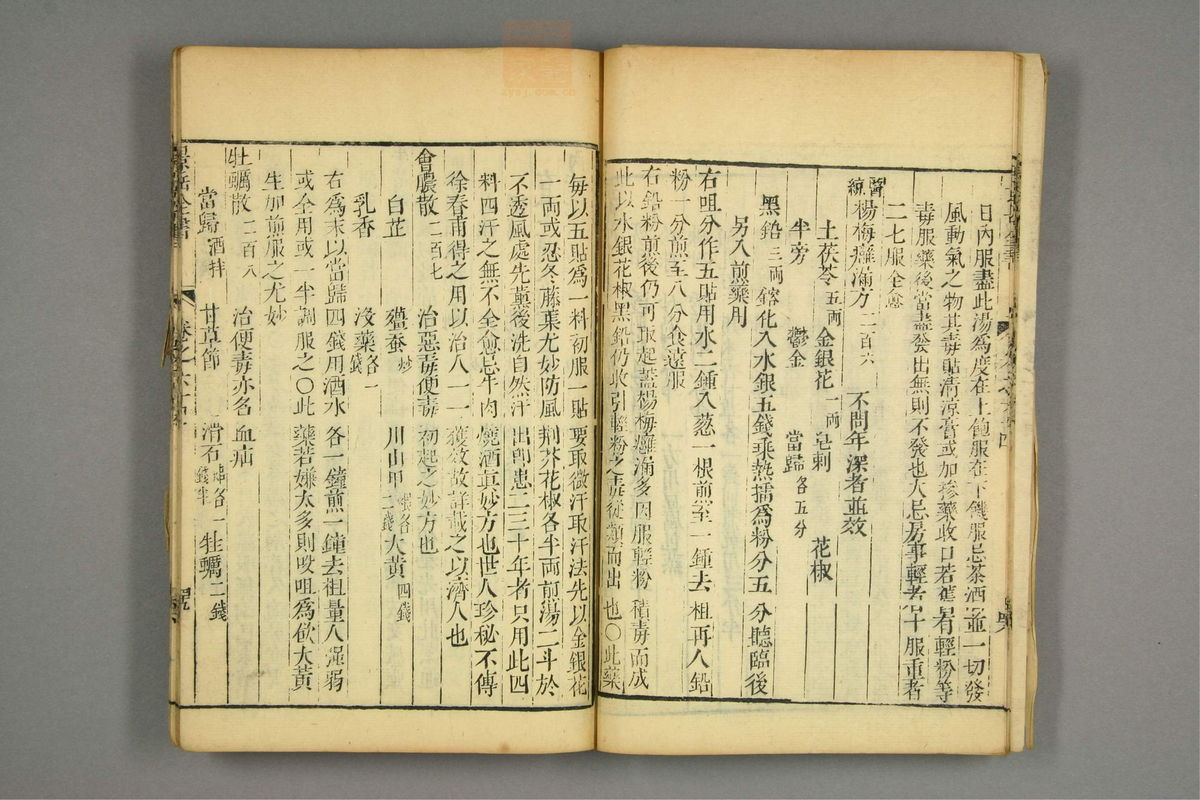 日內服盡此湯爲度在上飽服在下饑服忌茶酒並一切發
風動氣之物其毒貼清凉膏或加摻藥收口若舊有輕粉等
毒服藥後當盡發出無則不發也大忌房事輕者十服重者
二七服全愈
醫統楊梅癰漏方 二百六 不問年深者並效
土茯苓 五兩 金銀花 一兩 皂刺 花椒
牛旁 鬱金 當歸 各五分
黑鉛 三兩 鎔化入水銀五錢乘熱擂爲粉分五分聽臨後
另入煎藥用
右咀分作五貼用水二鍾入葱一根煎至一鍾去柤再入鉛
粉一分煎至八分食遠服
右鉛粉煎後仍可取起蓋楊梅癰漏多因服輕粉積毒而成
此以水銀花椒黑鉛仍收引輕粉之毒從類而出也〇此藥
每以五貼爲一料初服一貼要取微汗取汗法先以金銀花
一兩或忍冬藤葉尤妙防風荆芥花椒各半兩煎湯二斗於
不透風處先薰後洗自然汗出卽患二三十年者只用此四
料四汗之無不全愈忌牛肉燒酒眞妙方也世人珍秘不傳
徐春甫得之用以治人一一獲效故詳載之以濟人也
會膿散 二百七 治惡毒便毒初起之妙方也
白芷 殭蚕 炒 川山甲 各二錢 大黃 四錢
乳香 沒藥 各一錢
右爲末以當歸四錢用酒水各一鐘煎一鐘去柤量人強弱
或全用或一半調服之〇此藥若嫌太多則㕮咀爲飲大黃
生加煎服之尤妙
牡蠣散 二百八 治便毒亦名血疝
當歸 酒拌 甘草節 滑石 各一錢半 牡蠣 二錢
景岳全書 卷之六十四